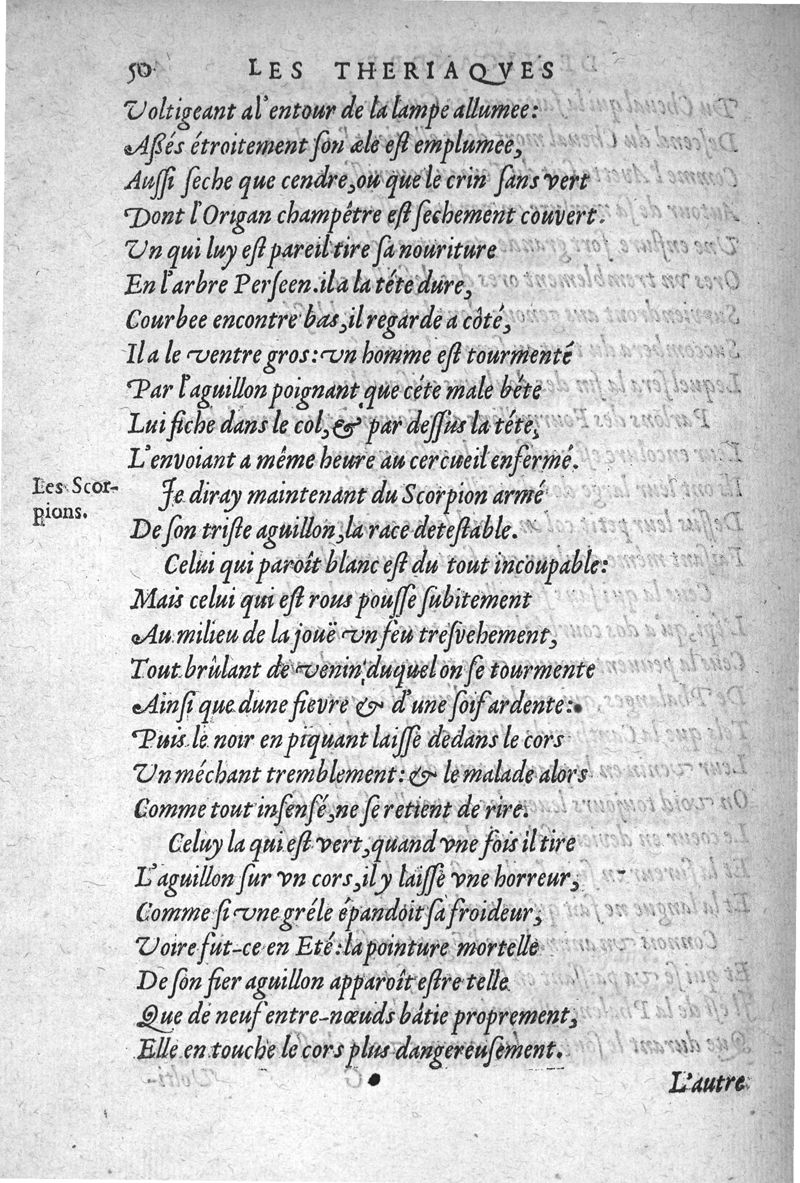 50 LES THERIAQVES
Voltigeant a l'entour de la lampe allumee:
Aßés étroitement son æle est emplumee,
Aussi seche que cendre, ou que le crin sans vert
Dont l'Origan champétre est sechement couvert.
Un qui luy est pareil tire sa nouriture
En l'arbre Perseen. il a la téte dure,
Courbee encontre bas, il regarde a côté,
Il a le ventre gros: un homme est tourmenté
Par l'aguillon poignant que céte male béte
Lui fiche dans le col, & par dessus la téte,
L'envoiant a même heure au cercueil enfermé.
Les Scor-
pions.
Je diray maintenant du Scorpion armé
De son triste aguillon, la race detestable.
Celui qui paroît blanc est du tout incoupable:
Mais celui qui est rous pousse subitement
Au milieu de la jouë un feu tresvehement,
Tout brûlant de venin, duquel on se tourmente
Ainsi que dune fievre & d'une soif ardente:
Puis le noir en piquant laisse dedans le cors
Un méchant tremblement: & le malade alors
Comme tout insensé, ne se retient de rire.
Celuy la qui est vert, quand vne fois il tire
L'aguillon sur vn cors, il y laisse vne horreur,
Comme si une gréle épandoit sa froideur,
Voire fut-ce en Eté: la pointure mortelle
De son fier aguillon apparoît estre telle
Que de neuf entre-nœuds bâtie proprement,
Elle en touche le cors plus dangereusement.
L'autre